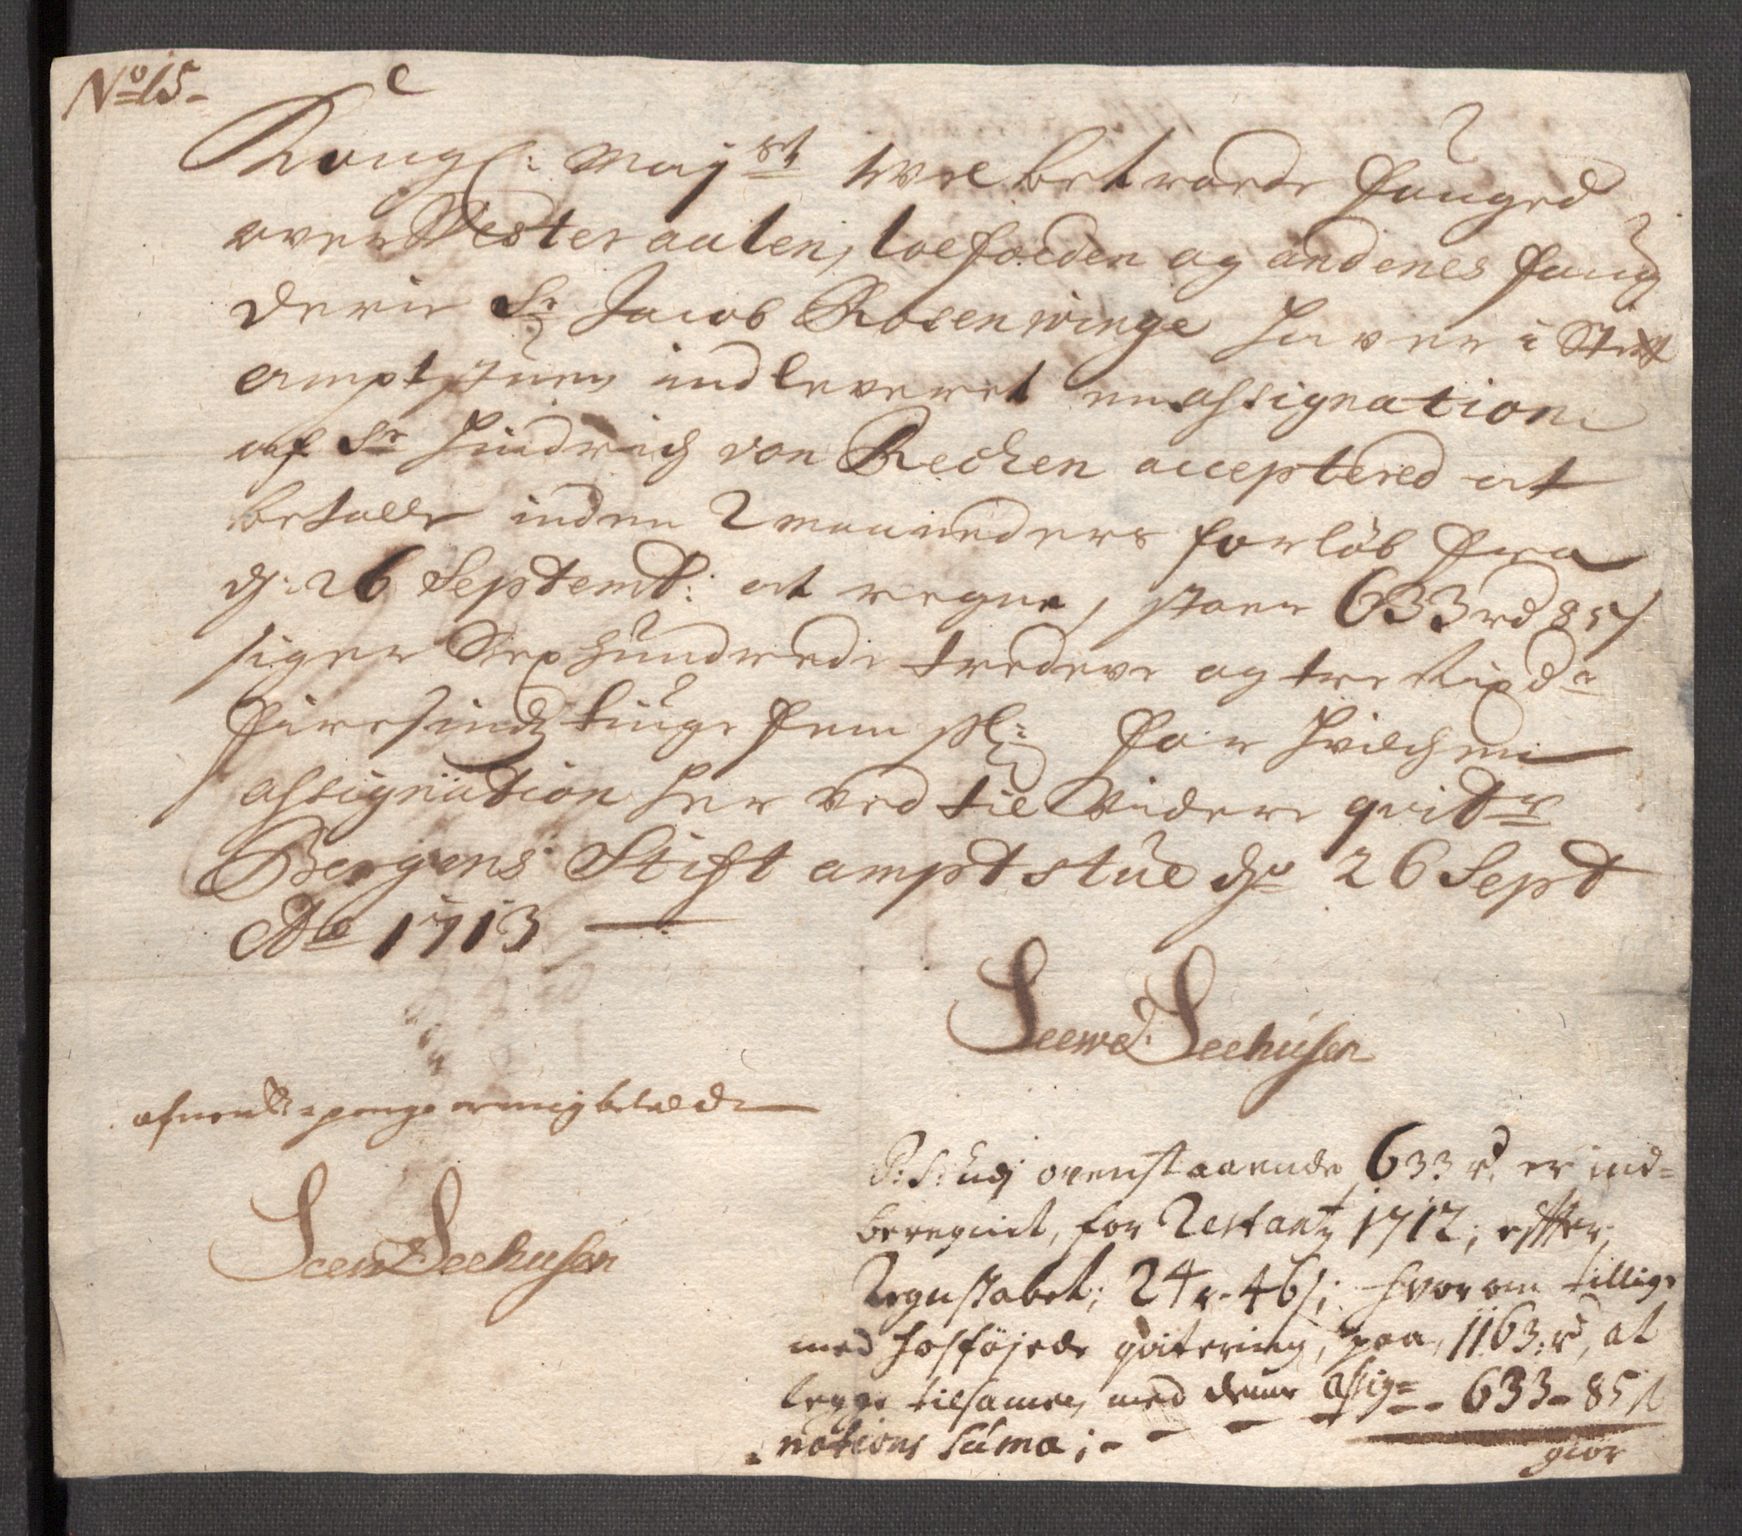 No 15.
Kongl: Mayst. velbetroede fouged
over Westeraalen, loefoeden og andenes foug
derie Sr. Jacob Rosenwinge haver i Stift
amptstuen indleveret en assignation
af Sr. Hindrich von Rechen acceptered at
betalle inden 2 maaneders forløb fra
d: 26 Septemb: at regne, stoer 633 rd 85 s
siger Sex hundrede tredeve og tre Rixdr
fiiresindstiuge fem sl: for hvilchen
assignation her ved til Videre qvitr
Bergens Stift amptstue d. 26 Sept
Ao 1713
Seewd. Seehusen
afnendte penge er mig betalde
Seewd Seehusen
P:S: udj ovenstaaende 633 rd. er ind-
beregnit, for Restantz 1712; effter
Regnskabet; 24 r. 46 s; hvorom tillige
med hosføjede qvitering, paa, 1163: rd, at
legge tilsamen med denne assig= - 633 - 85 s
nations Suma; - - -
giør